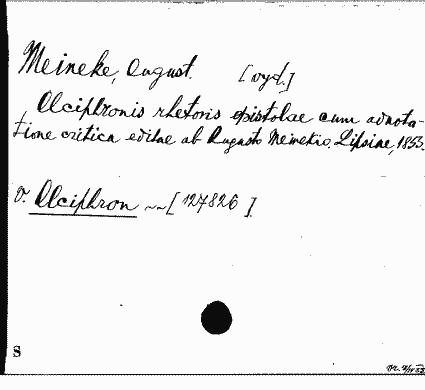 Meineke, August. [vyd.]
Alciphronis rhetoris epistolae cum adnota-
tione critica editae ab Augusto Meinekio. Lipsiae, 1853.
v. Alciphron ~~[127826].
S